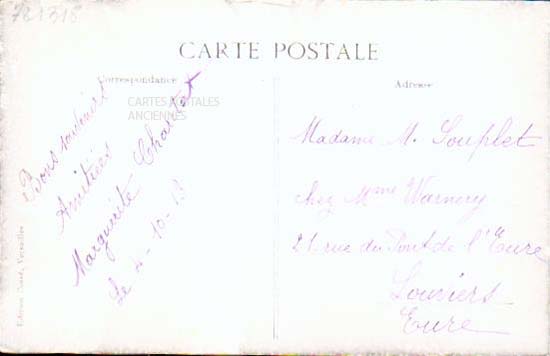 781318
CARTE POSTALE
Correspondance
Adresse
CARTES POSTALES
ANCIENNES
Bons souvenirs
Amitiés
Marguerite
Le 4-10-13
Madame M. Souplet
chez Mme Warnery
21 rue du Pont de l'Eure
Louviers
Eure
Versailles